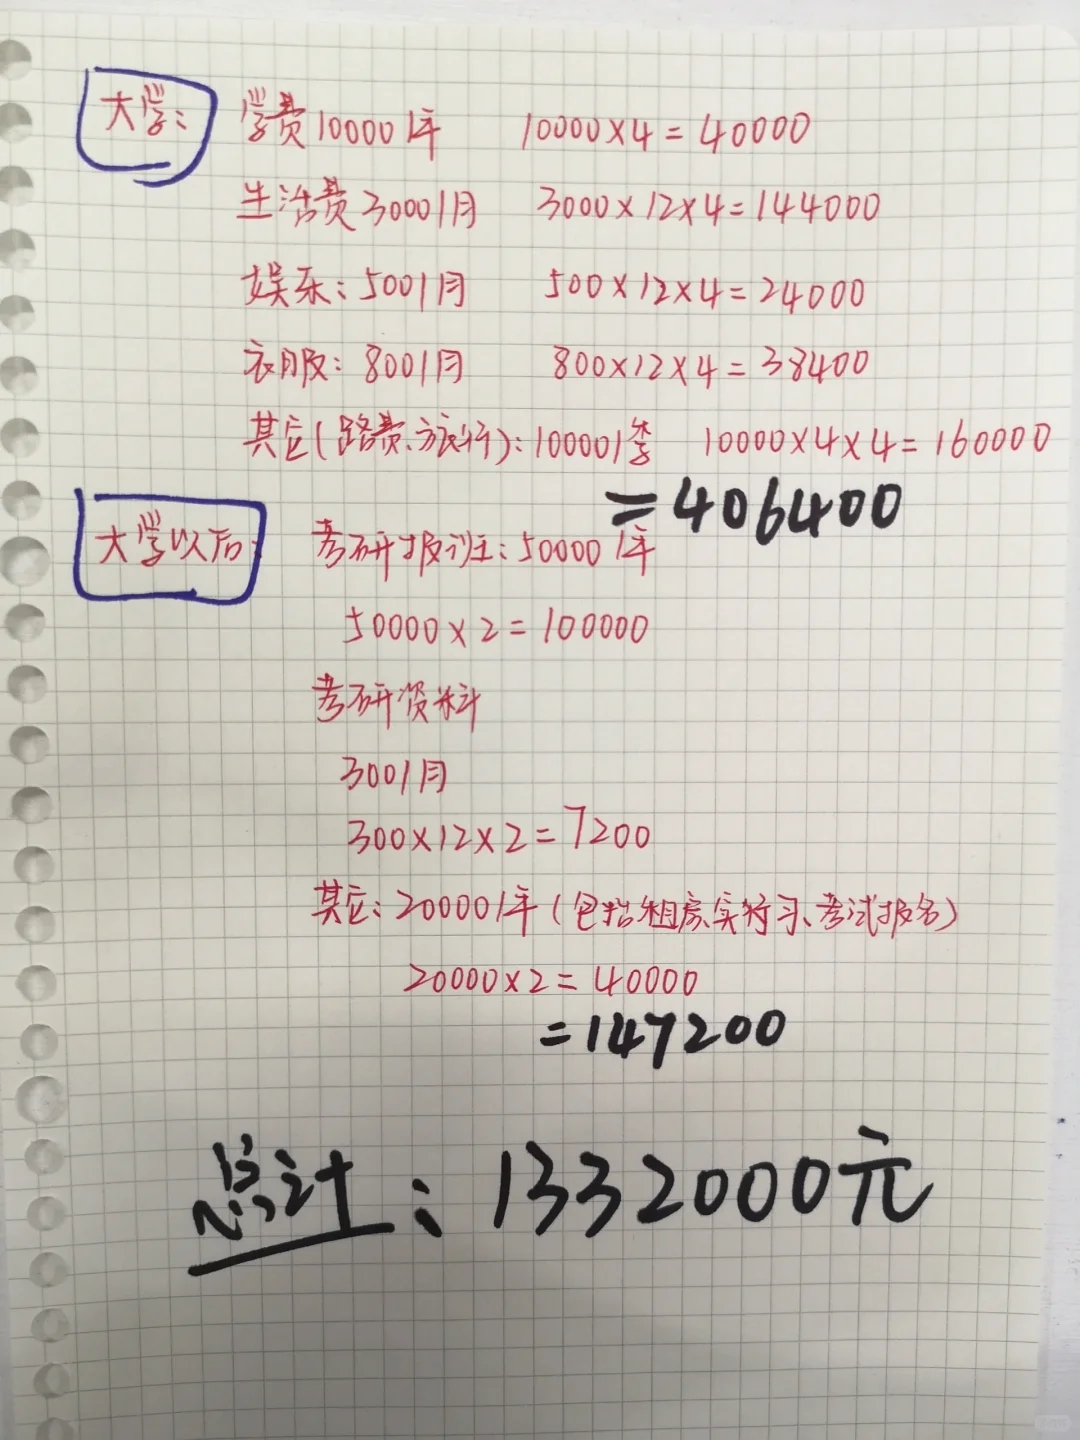 大学: 学费10000/年 10000×4=40000
生活费3000/月 3000×12×4=144000
娱乐:500/月 500×12×4=24000
衣服:800/月 800×12×4=38400
其它(路费、旅行):10000/季 10000×4×4=160000
=406400
大学以后: 考研报班:50000/年
50000×2=100000
考研资料
300/月
300×12×2=7200
其它:20000/年(包括租房、实习、考试报名)
20000×2=40000
=147200
总计:1332000元